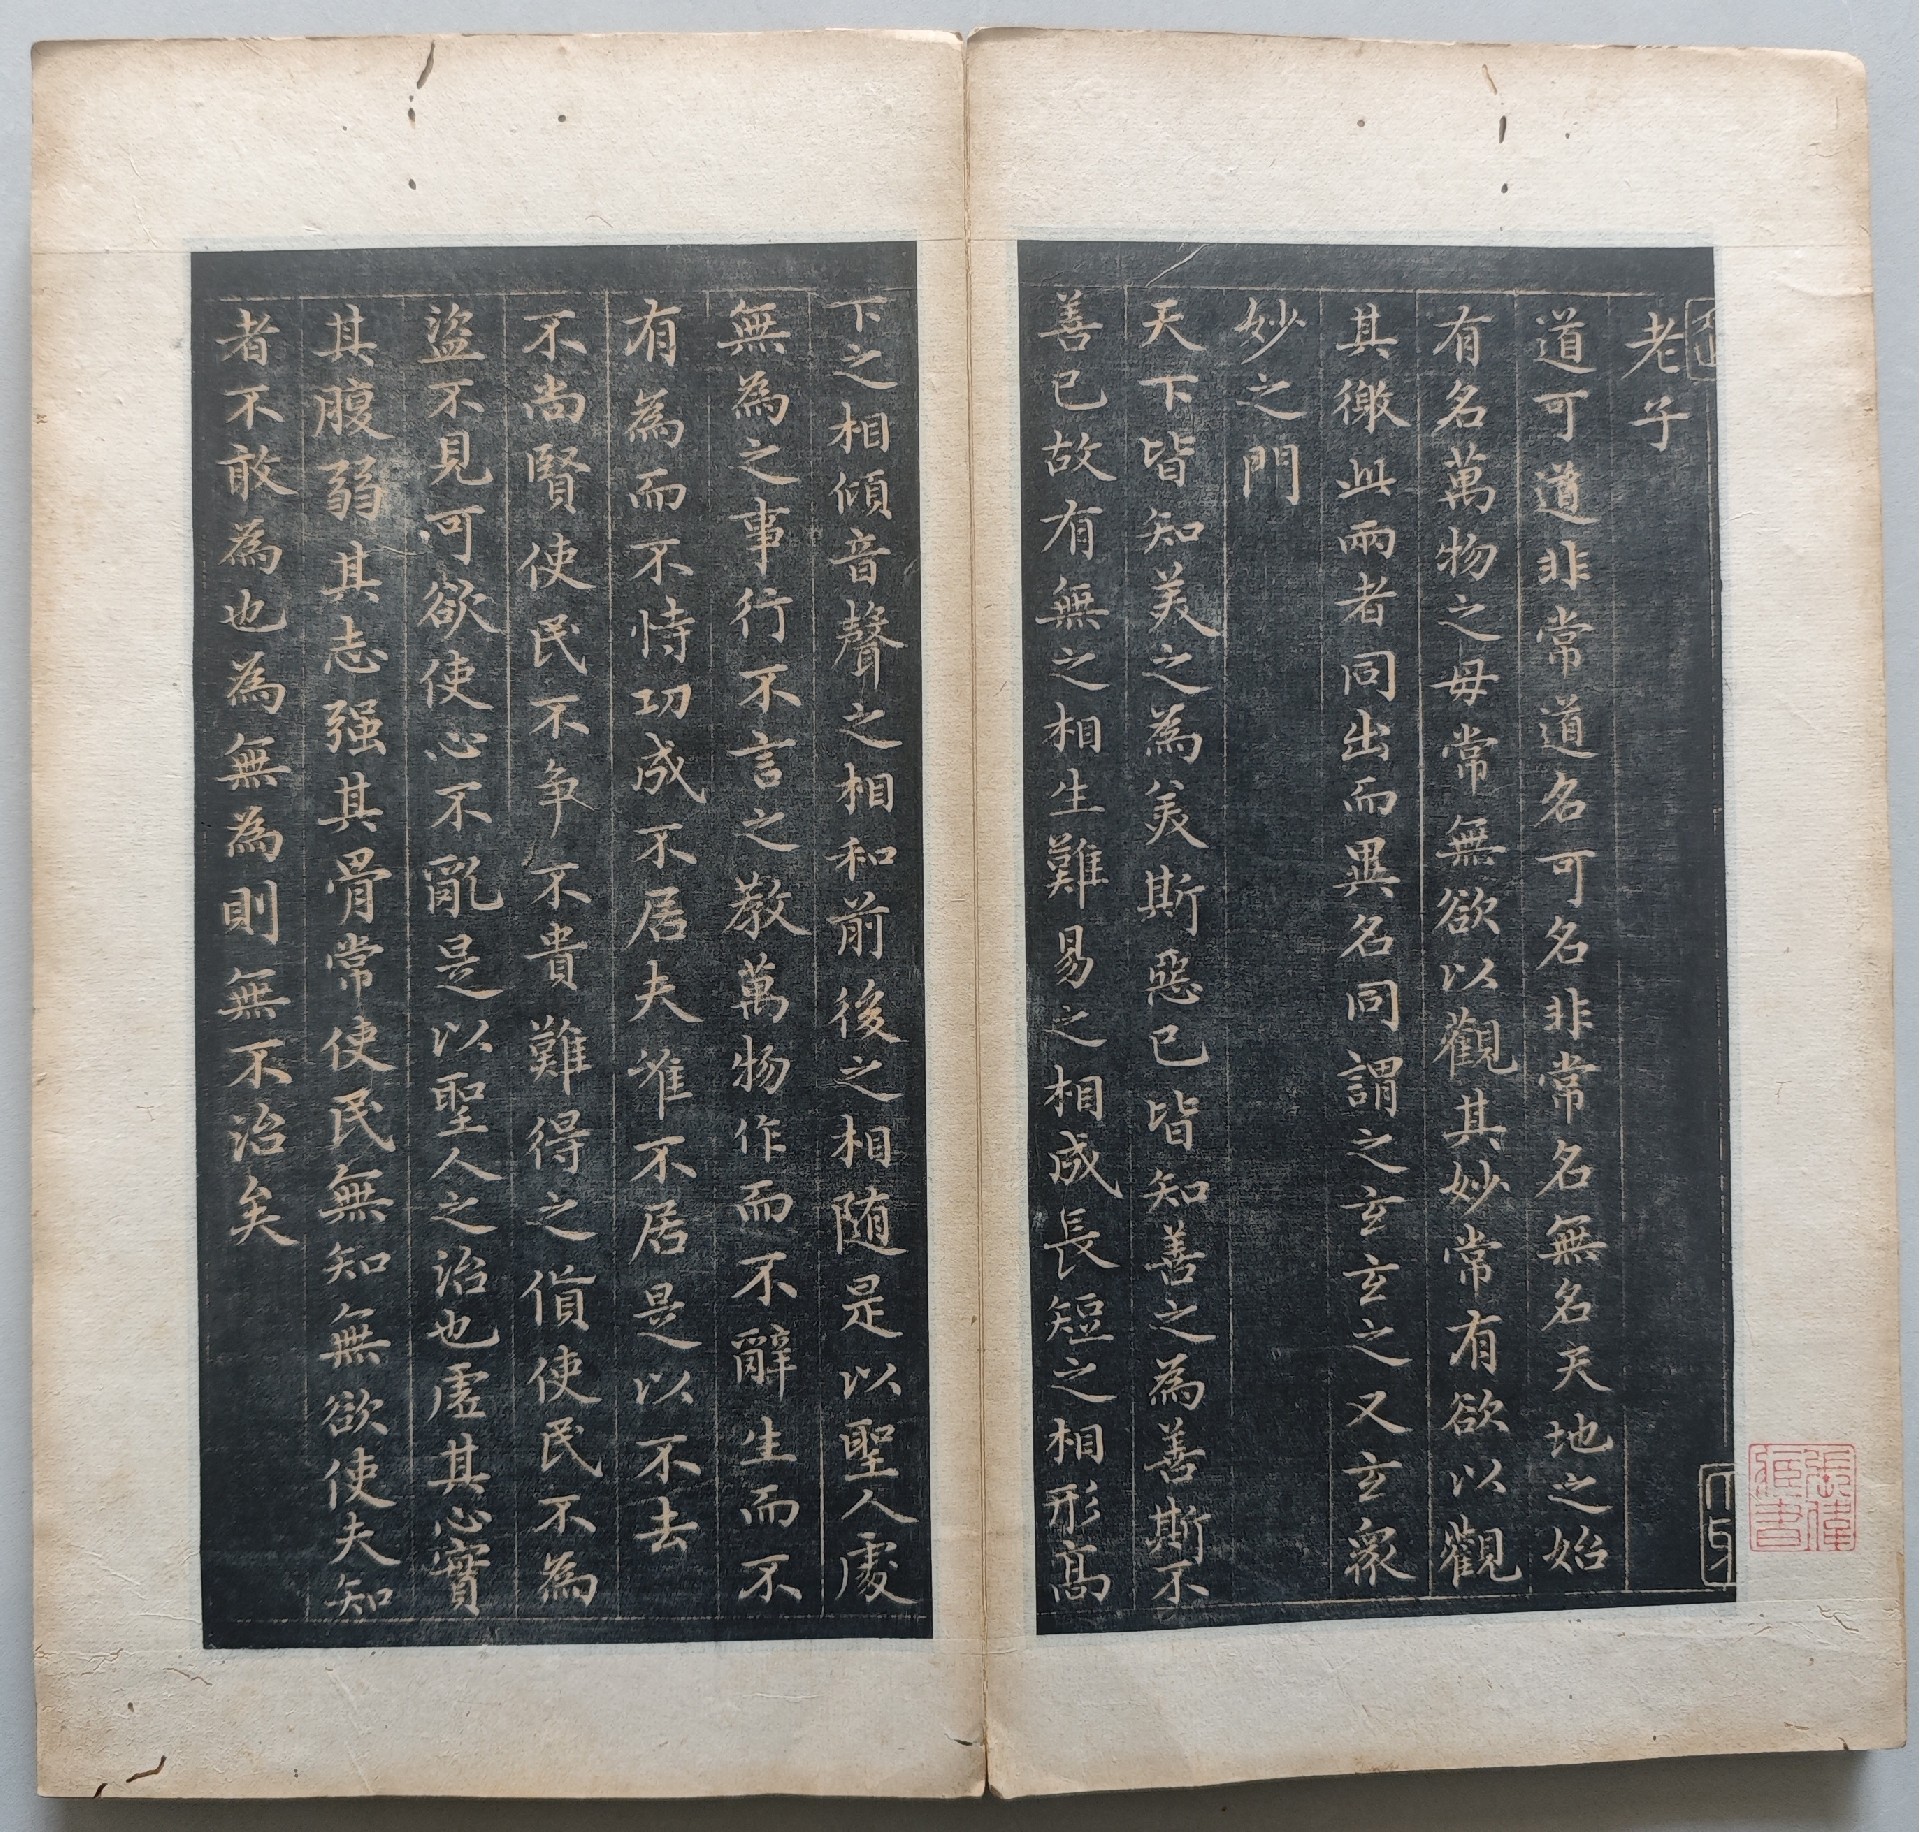 老子
道可道非常道名可名非常名無名天地之始
有名萬物之母常無欲以觀其妙常有欲以觀
其徼此兩者同出而異名同謂之玄玄之又玄衆
妙之門
天下皆知美之為美斯惡已皆知善之為善斯不
善已故有無之相生難易之相成長短之相形高
下之相傾音聲之相和前後之相随是以聖人處
無為之事行不言之教萬物作而不辭生而不
有為而不恃功成不居夫惟不居是以不去
不尚賢使民不争不貴難得之貨使民不為
盜不見可欲使心不亂是以聖人之治也虛其心實
其腹弱其志强其骨常使民無知無欲使夫知
者不敢為也為無為則無不治矣